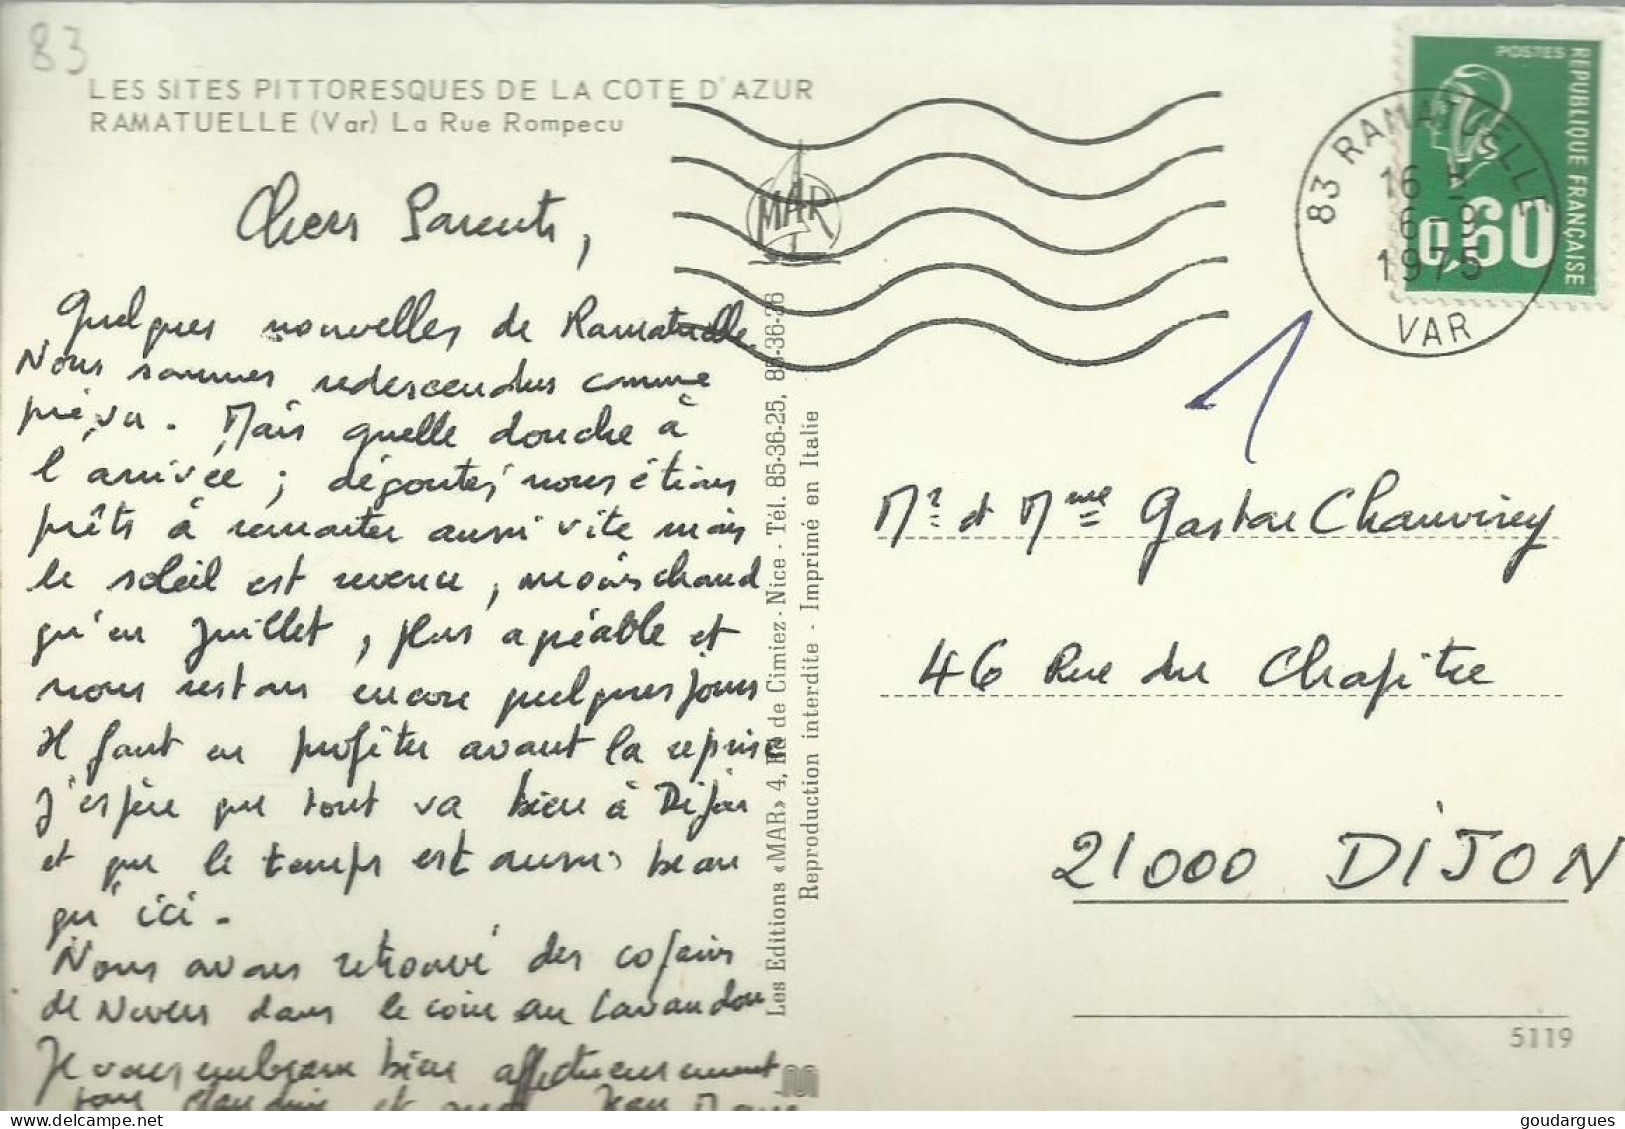 83
LES SITES PITTORESQUES DE LA COTE D'AZUR
RAMATUELLE (Var) La Rue Rompecu
MAR
POSTES
REPUBLIQUE FRANÇAISE
0,60
83 RAMATUELLE
16 H
6-8
1975
VAR
Chers Parents,
Quelques nouvelles de Ramatuelle.
Nous sommes redescendus comme
prévu. Mais quelle douche à
l'arrivée ; dégoutés nous étions
prêts à remonter aussi vite mais
le soleil est revenu, moins chaud
qu'en Juillet, plus agréable et
nous restons encore quelques jours
Il faut en profiter avant la reprise
J'espère que tout va bien à Dijon
et que le temps est aussi beau
qu'ici.
Nous avons retrouvé des copains
de Nevers dans le coin au Lavandou
Je vous embrasse bien affectueusement
Les Editions «MAR» 4, Rue de Cimiez - Nice - Tél. 85-36-25, 85-36-26
Reproduction interdite - Imprimé en Italie
1
Mr et Mme Gaston Chauvirey
46 Rue du Chapitre
21000 DIJON
5119
goudargues@